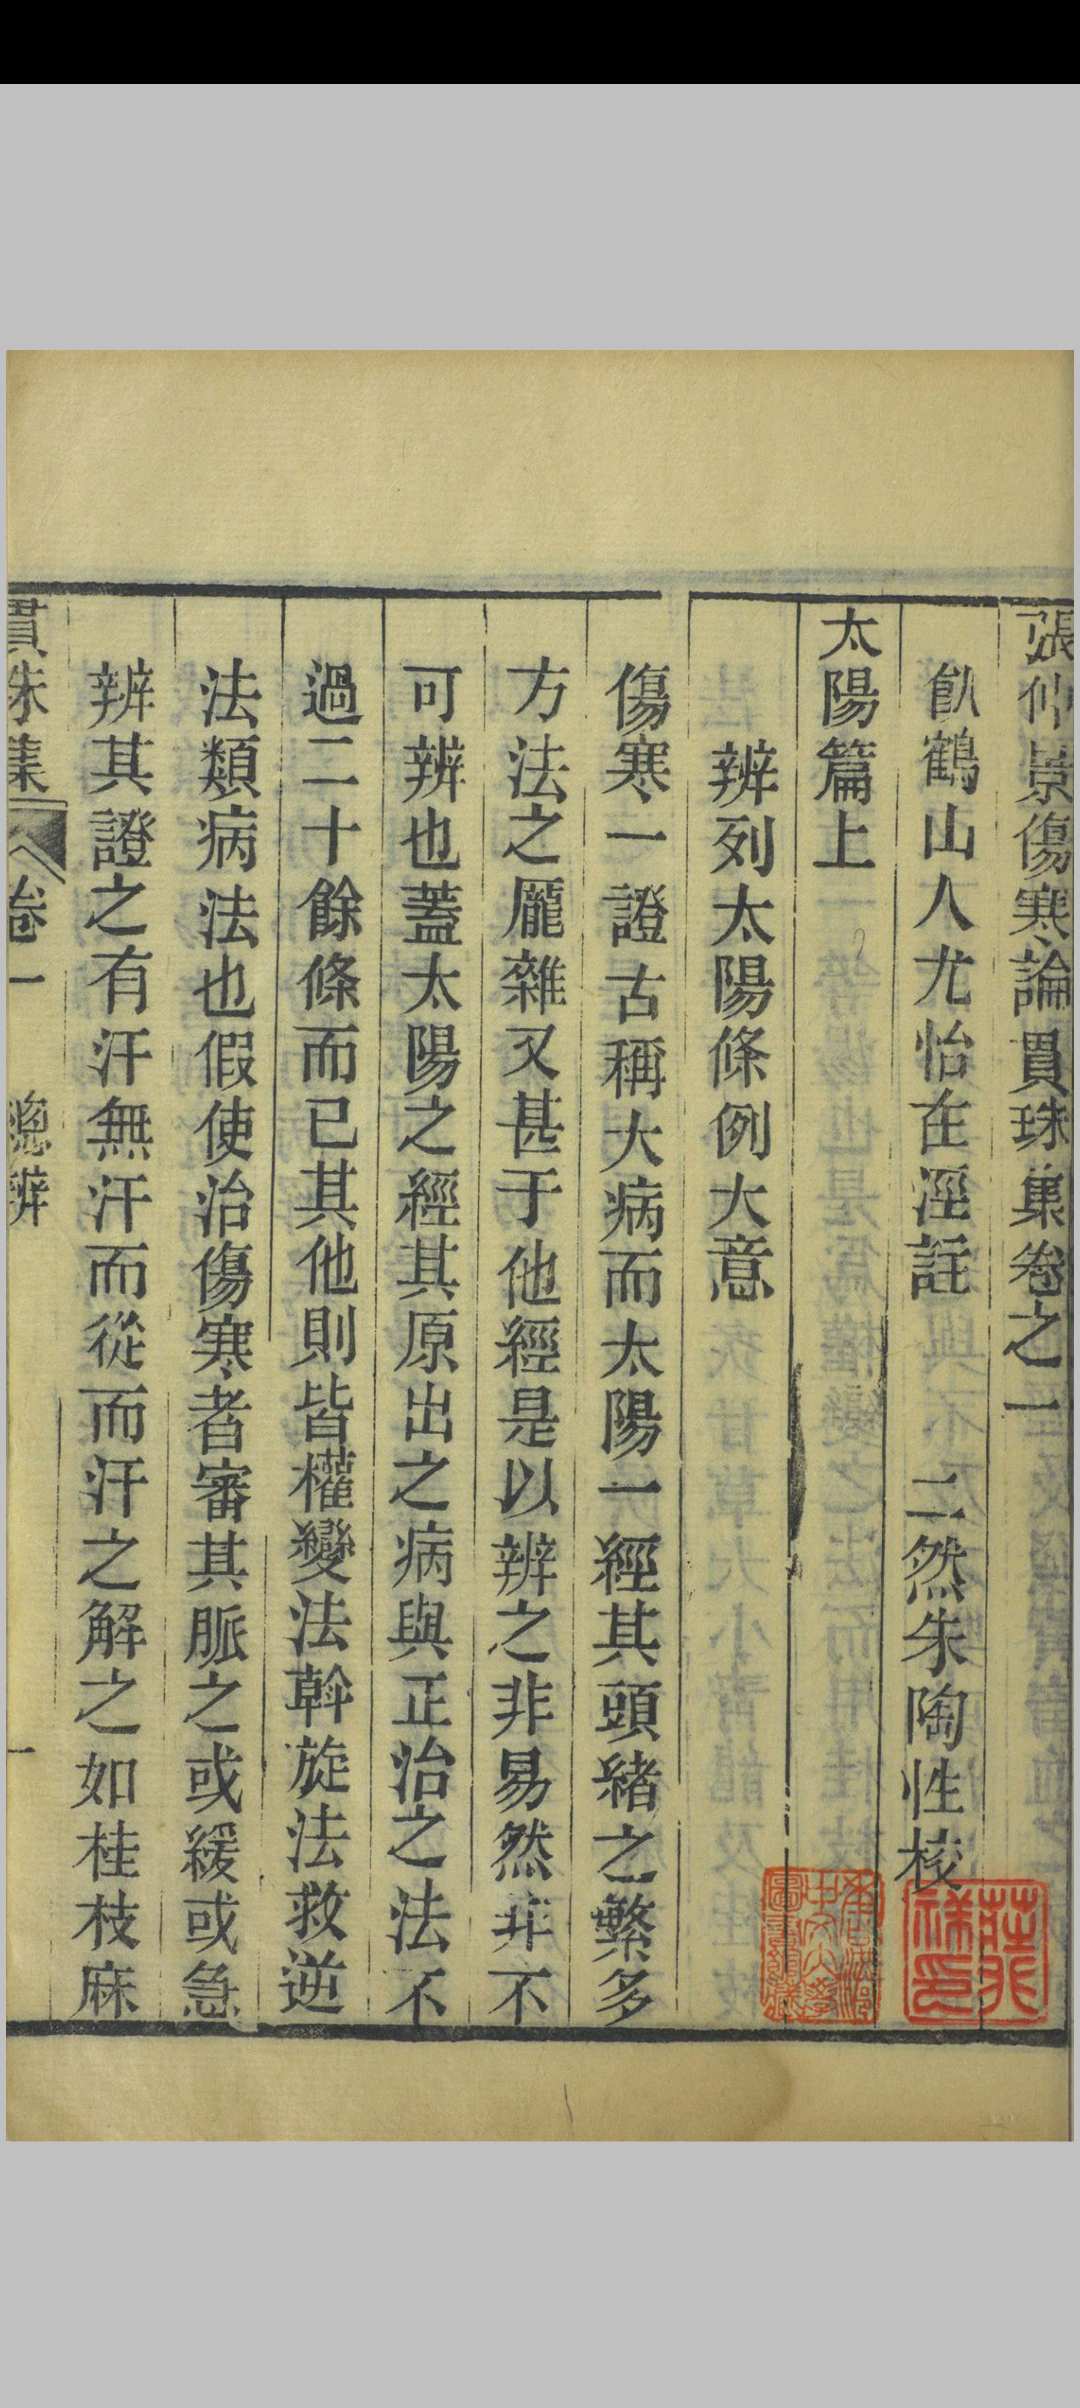 張仲景傷寒論貫珠集卷之一
飲鶴山人尤怡在涇註　二然朱陶性校
太陽篇上
辨列太陽條例大意
傷寒一證古稱大病而太陽一經其頭緒之繁多
方法之龐雜又甚于他經是以辨之非易然非不
可辨也蓋太陽之經其原出之病與正治之法不
過二十餘條而已其他則皆權變法斡旋法救逆
法類病法也假使治傷寒者審其脈之或緩或急
辨其證之有汗無汗而從而汗之解之如桂枝麻
貫珠集　卷一　總辨　一